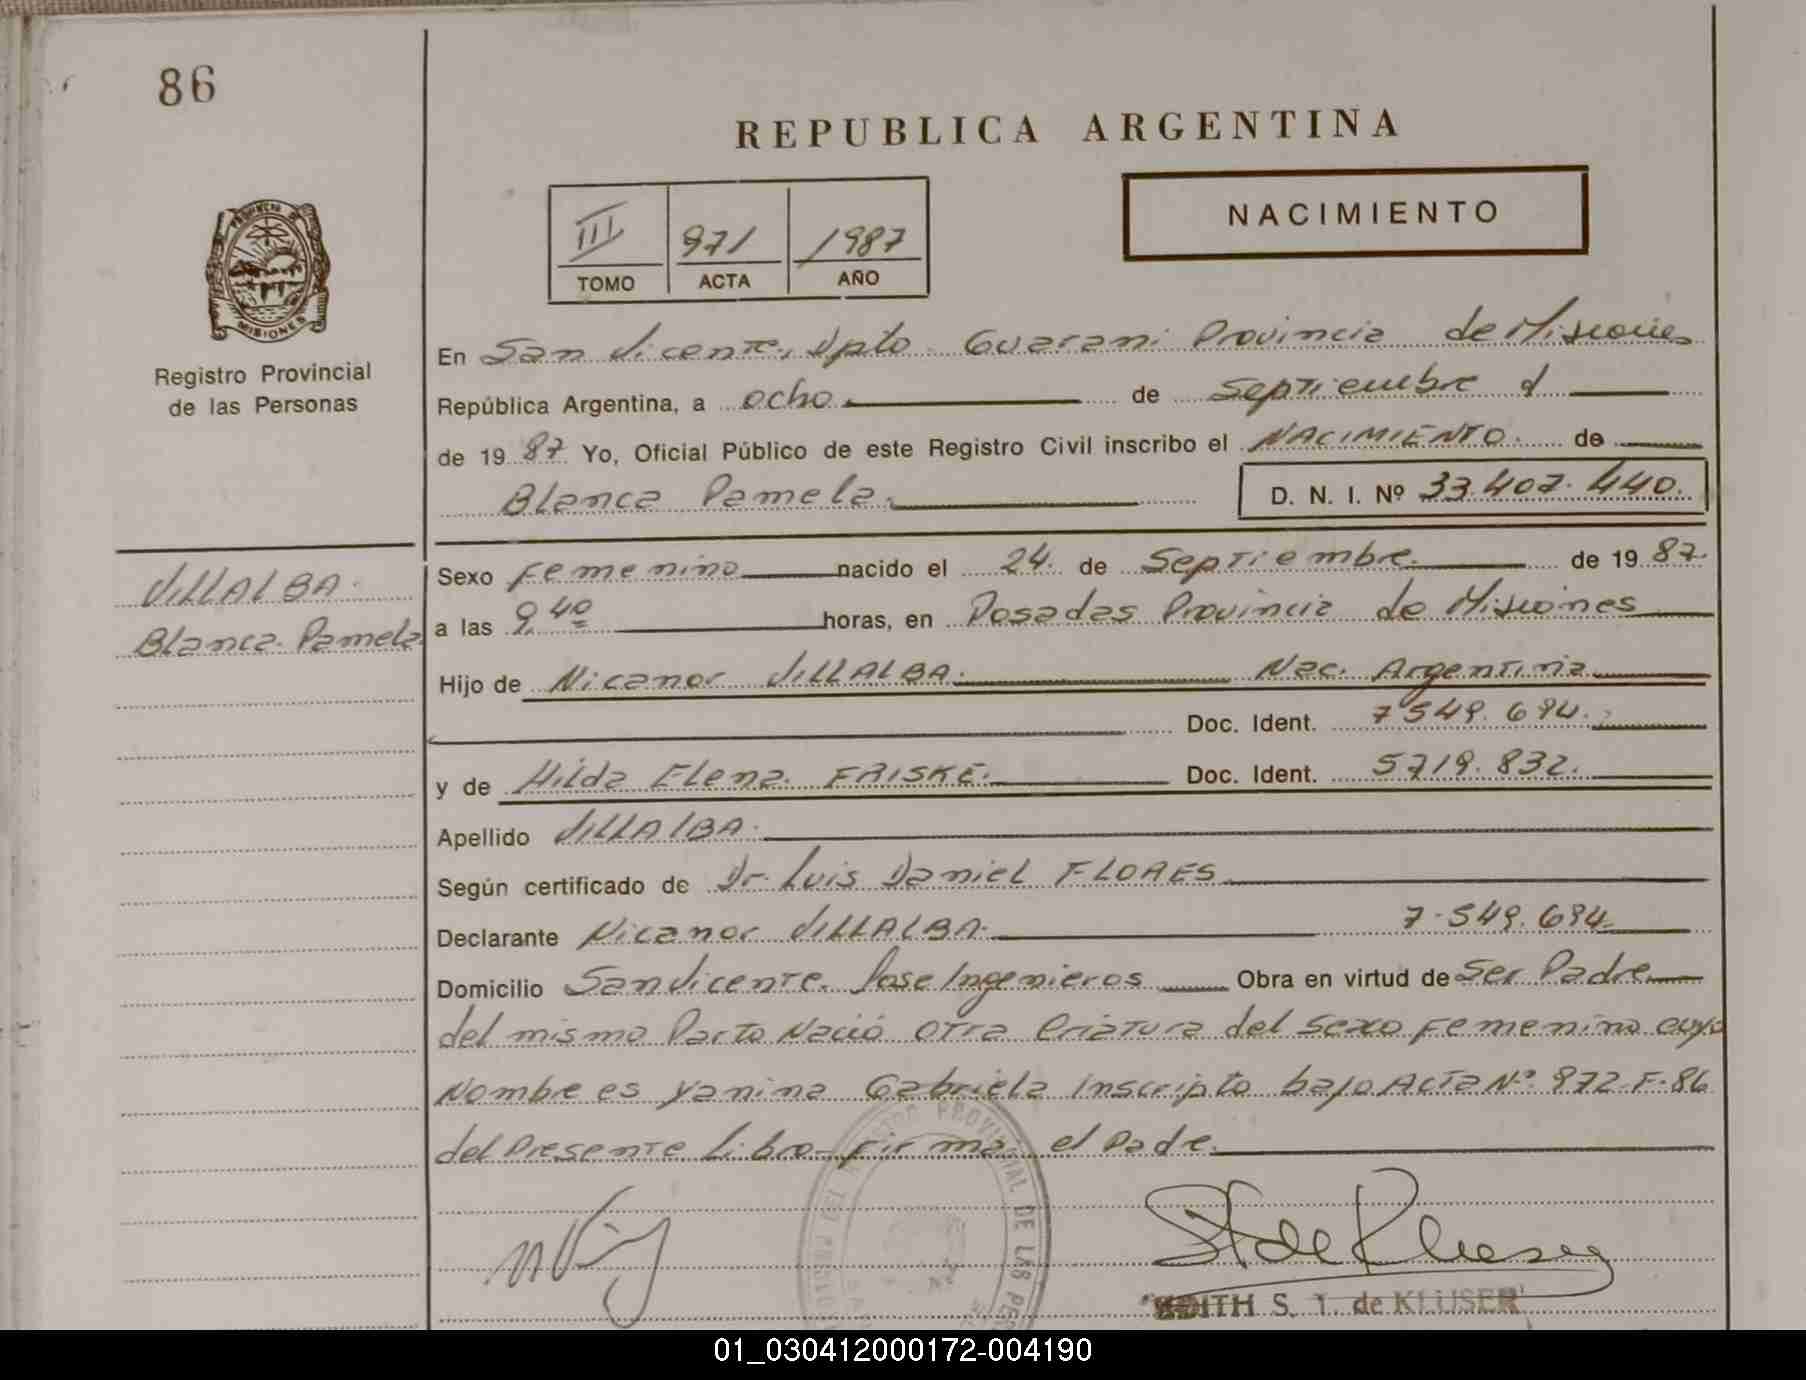 86
REPUBLICA ARGENTINA
NACIMIENTO
III 971 1987
TOMO ACTA AÑO
PROVINCIA DE
MISIONES
Registro Provincial
de las Personas
En San Vicente, Dpto. Guarani Provincia de Misiones
República Argentina, a ocho de Septiembre d
de 1987 Yo, Oficial Público de este Registro Civil inscribo el NACIMIENTO. de
Blanca Pamela. D. N. I. Nº 33.407.440.
VILLALBA.
Blanca Pamela
Sexo Femenino nacido el 24. de Septiembre. de 1987.
a las 9,40 horas, en Posadas Provincia de Misiones
Hijo de Nicanor VILLALBA. Nac. Argentina
Doc. Ident. 7549.694.
y de Hilda Elena FRISKE. Doc. Ident. 5719.832.
Apellido VILLALBA.
Según certificado de Dr. Luis Daniel FLORES
Declarante Nicanor VILLALBA. 7.549.694.
Domicilio San Vicente. Jose Ingenieros Obra en virtud de Ser Padre
del mismo Parto Nació otra Criatura del Sexo Femenino cuyo
Nombre es Yanina Gabriela inscripto bajo Acta Nº 972-F-86
del Presente Libro-Firma: el Padre.
PROVINCIAL DE LAS
S. T. de KLUSER
01_030412000172-004190